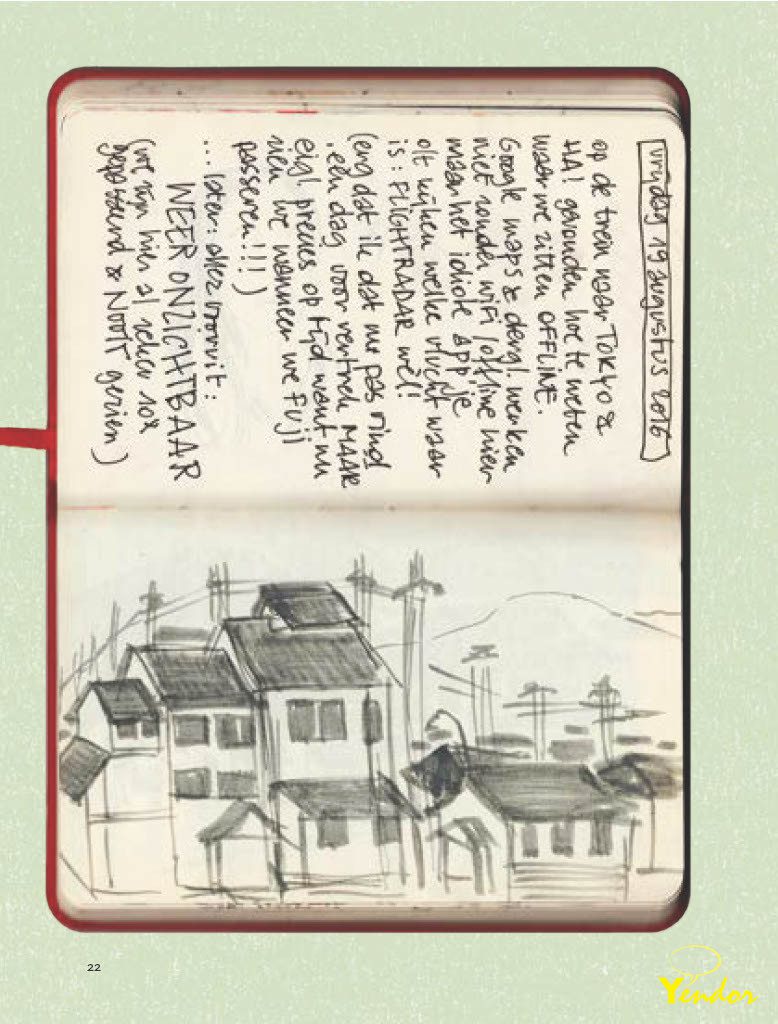 vrijdag 19 augustus 2016
op de trein naar TOKYO &
HA! gevonden hoe te weten
waar we zitten OFFLINE.
Google maps & dergl. werken
niet zonder wifi/offline hier
maar het idiote App je
olt kijken welke vlucht waar
is: FLIGHTRADAR wèl!
(erg dat ik dat nu pas vind
, één dag voor vertrek MAAR
eigl. precies op tijd want nu
zien we wanneer we FUJI
passeren!!!)
... later: allez vooruit:
WEER ONZICHTBAAR
(we zijn hier al zeker 10x
gepasseerd & NOOIT gezien)
22
Yendor